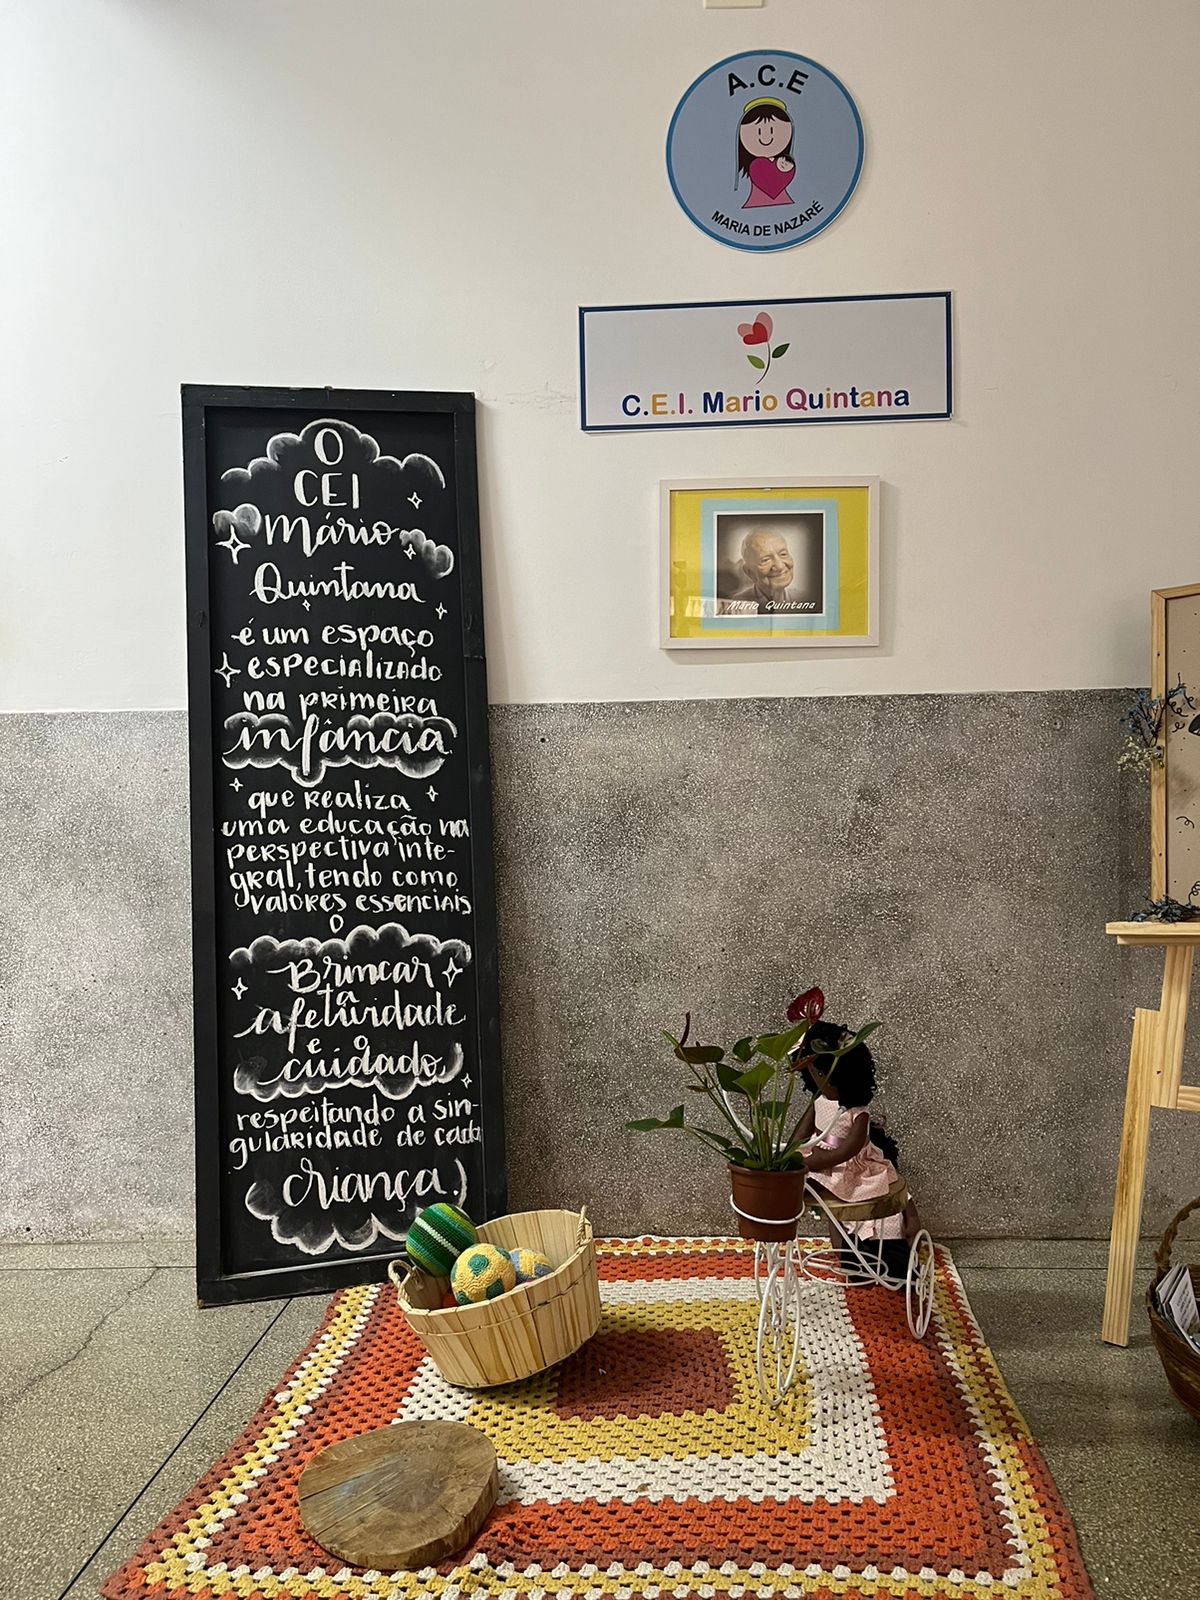 A.C.E
MARIA DE NAZARÉ
C.E.I. Mario Quintana
Mário Quintana
O
CEI
Mário
Quintana
é um espaço
especializado
na primeira
infância
que realiza
uma educação na
perspectiva inte-
gral, tendo como
valores essenciais
o
Brincar
a
afetividade
e o
cuidado
respeitando a sin-
gularidade de cada
criança.